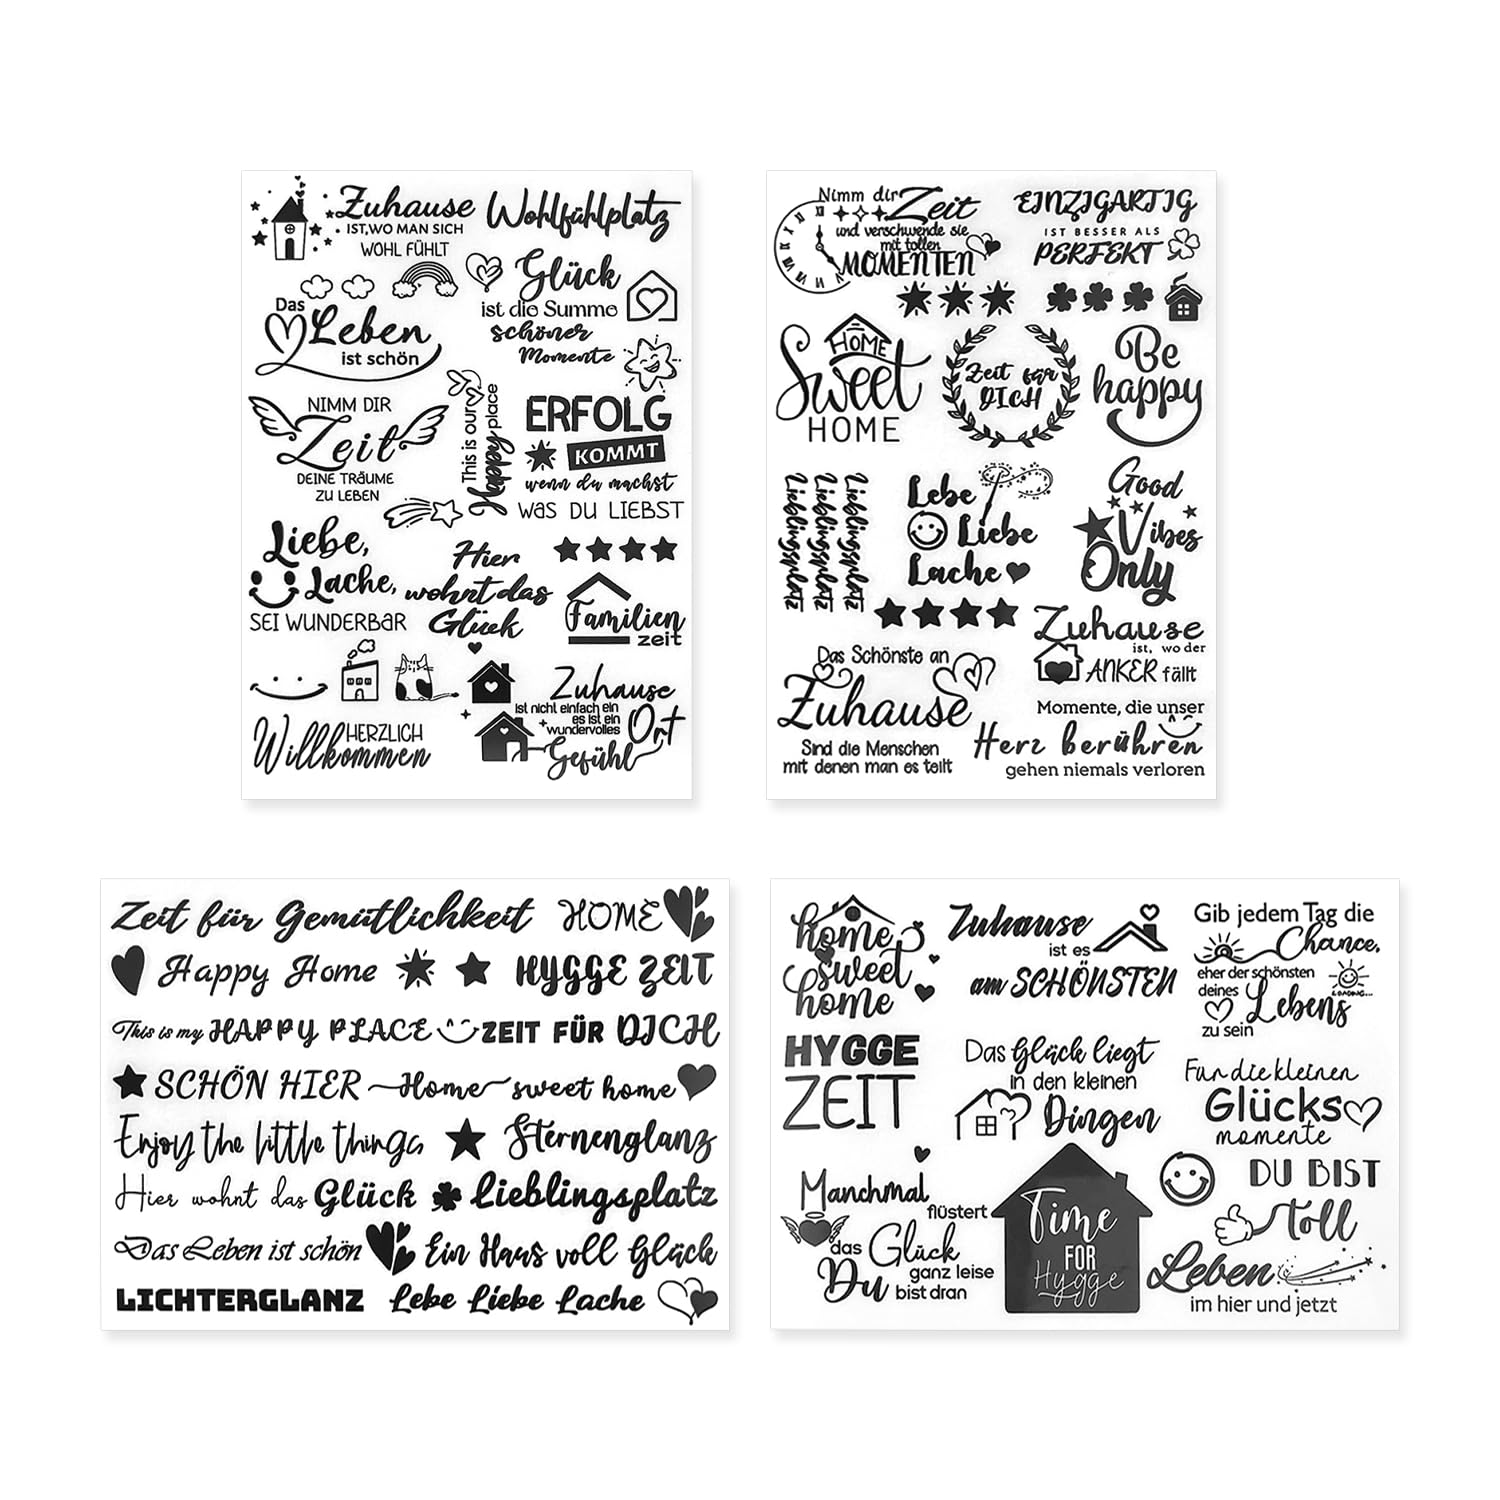 Zuhause
IST, WO MAN SICH
WOHL FÜHLT
Wohlfühlplatz
Das
Leben
ist schön
Glück
ist die Summe
schöner
Momente
NIMM DIR
Zeit
DEINE TRÄUME
ZU LEBEN
This is our
Happy
place
ERFOLG
KOMMT
wenn du machst
WAS DU LIEBST
Liebe,
Lache,
SEI WUNDERBAR
Hier
wohnt das
Glück
Familien
zeit
HERZLICH
Willkommen
Zuhause
ist nicht einfach ein
es ist ein
wundervolles
Ort
Gefühl
Nimm dir
Zeit
und verschwende sie
mit tollen
MOMENTEN
EINZIGARTIG
IST BESSER ALS
PERFEKT
HOME
Sweet
HOME
Zeit für
DICH
Be
happy
Lieblingsplatz
Lieblingsplatz
Lieblingsplatz
Lebe
Liebe
Lache
Good
Vibes
Only
Das Schönste an
Zuhause
Sind die Menschen
mit denen man es teilt
Zuhause
ist, wo der
ANKER fällt
Momente, die unser
Herz berühren
gehen niemals verloren
Zeit für Gemütlichkeit HOME
Happy Home HYGGE ZEIT
This is my HAPPY PLACE ZEIT FÜR DICH
SCHÖN HIER Home sweet home
Enjoy the little things Sternenglanz
Hier wohnt das Glück Lieblingsplatz
Das Leben ist schön Ein Haus voll Glück
LICHTERGLANZ Lebe Liebe Lache
home
sweet
home
Zuhause
ist es
am SCHÖNSTEN
Gib jedem Tag die
Chance,
eher der schönsten
deines
Lebens
zu sein
LOADING...
HYGGE
ZEIT
Das Glück liegt
in den kleinen
Dingen
Für die kleinen
Glücks
momente
Manchmal
flüstert
das Glück
ganz leise
Du bist dran
Time
FOR
Hygge
DU BIST
toll
Leben
im hier und jetzt